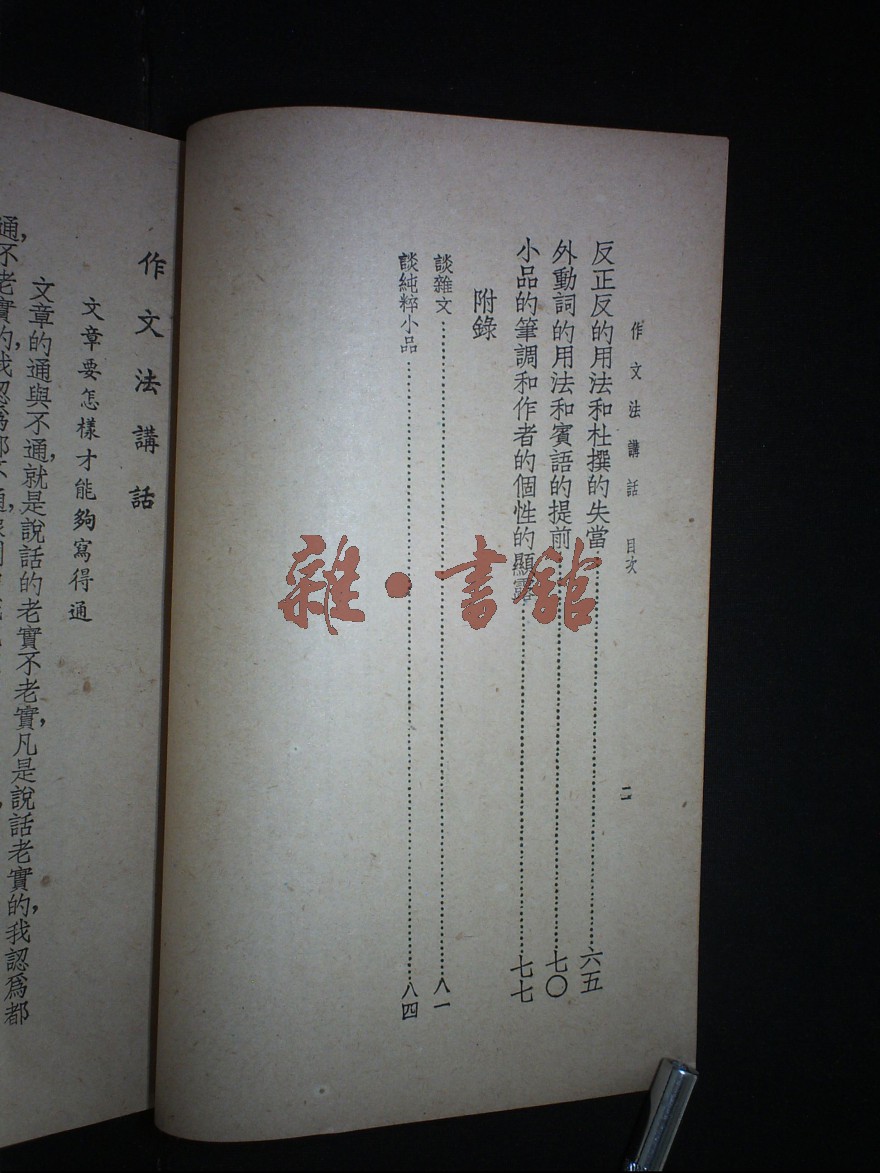 作文法講話 目次 二
反正反的用法和杜撰的失當……六五
外動詞的用法和賓語的提前……七〇
小品的筆調和作者的個性的顯露……七七
附錄
談雜文……八一
談純粹小品……八四
雜·書館
作文法講話
文章要怎樣才能夠寫得通
文章的通與不通，就是說話的老實不老實，凡是說話老實的，我認爲都
通，不老實的，我認爲都不通，